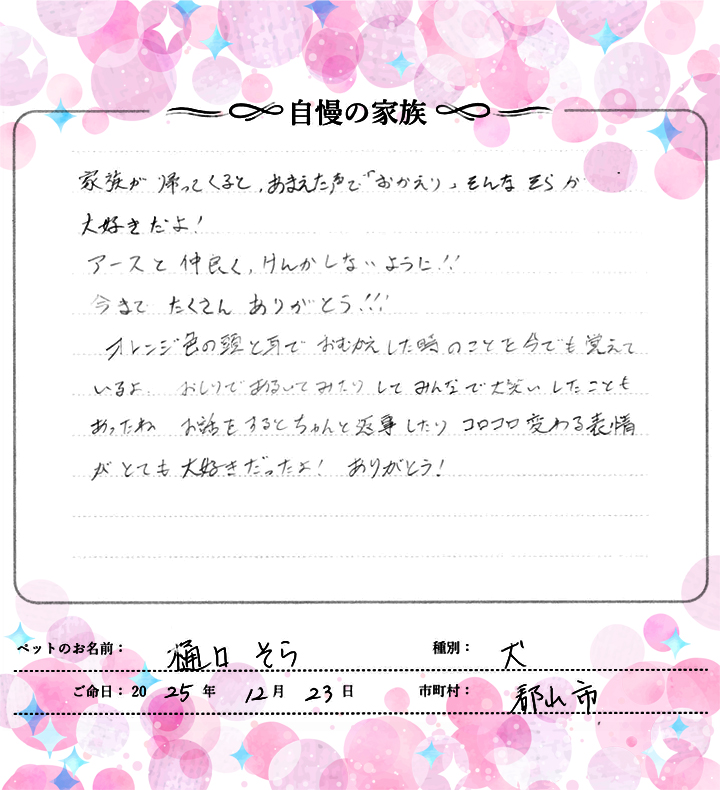 自慢の家族
家族が帰ってくると、あまえた声で「おかえり」そんなそらが
大好きだよ!
アースと仲良く、けんかしないように!!
今まで たくさん ありがとう!!!
オレンジ色の頭と耳で おむかえした時のことを今でも覚えて
いるよ。 おしりであるいてみたりしてみんなで大笑いしたことも
あったね お話をするとちゃんと返事したり コロコロ変わる表情
がとても大好きだったよ! ありがとう!
ペットのお名前: 樋口 そら 種別: 犬
ご命日: 2025年 12月 23日 市町村: 郡山市